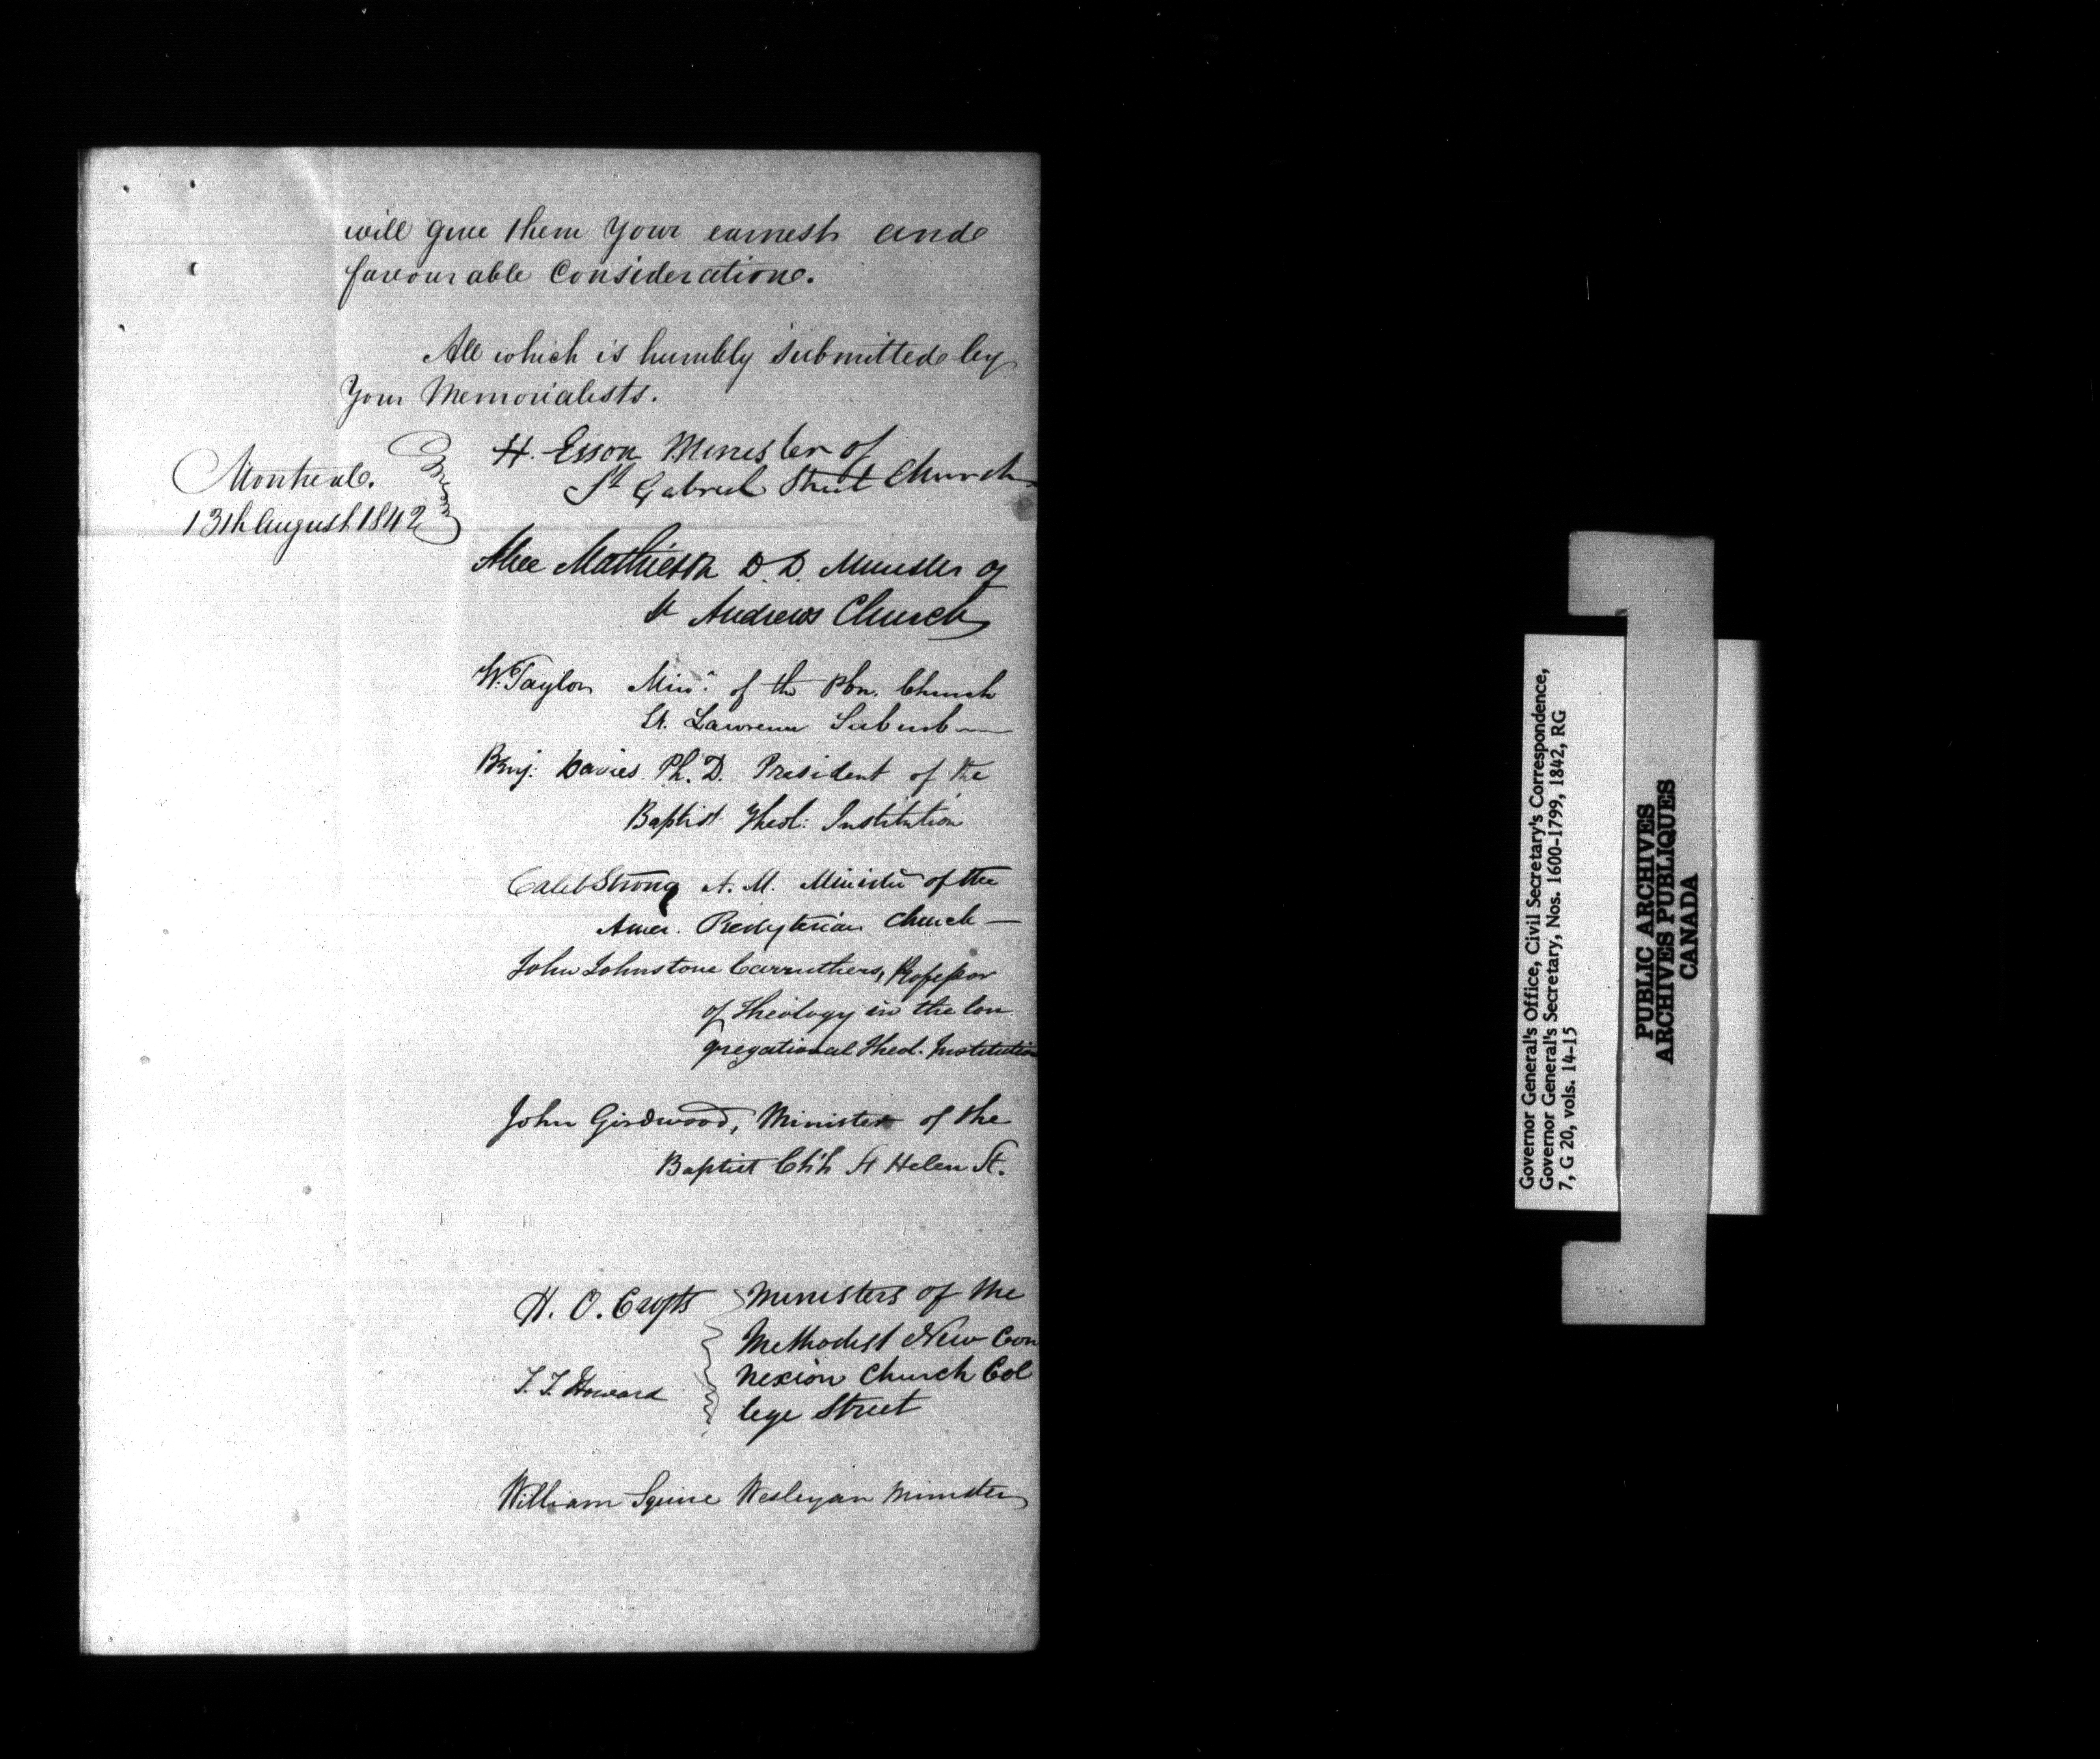 will give them Your earnest and
favourable Consideration.
All which is humbly Submitted by
Your Memorialists.
Montreal.
13th August 1842
H. Esson Minister of
St Gabriel Street Church
Alexr Mathieson D.D. Minister of
St Andrews Church
W. Taylor Minr. of the Pbn. Church
St. Lawrence Suburb
Benj: Davies. Ph. D. President of the
Baptist Theol: Institution
Caleb Strong A. M. Minister of the
Amer. Presbyterian Church —
John Johnstone Carruthers, Professor
of Theology in the Con
gregational Theol. Institution
John Girdwood, Minister of the
Baptist Ch'h St Helen St.
H. O. Crofts
T. T. Howard
Ministers of the
Methodist New Con
nexion Church Col
lege Street
William Squire Wesleyan Minister
Governor General's Office, Civil Secretary's Correspondence,
Governor General's Secretary, Nos. 1600-1799, 1842, RG
7, G 20, vols. 14-15
PUBLIC ARCHIVES
ARCHIVES PUBLIQUES
CANADA